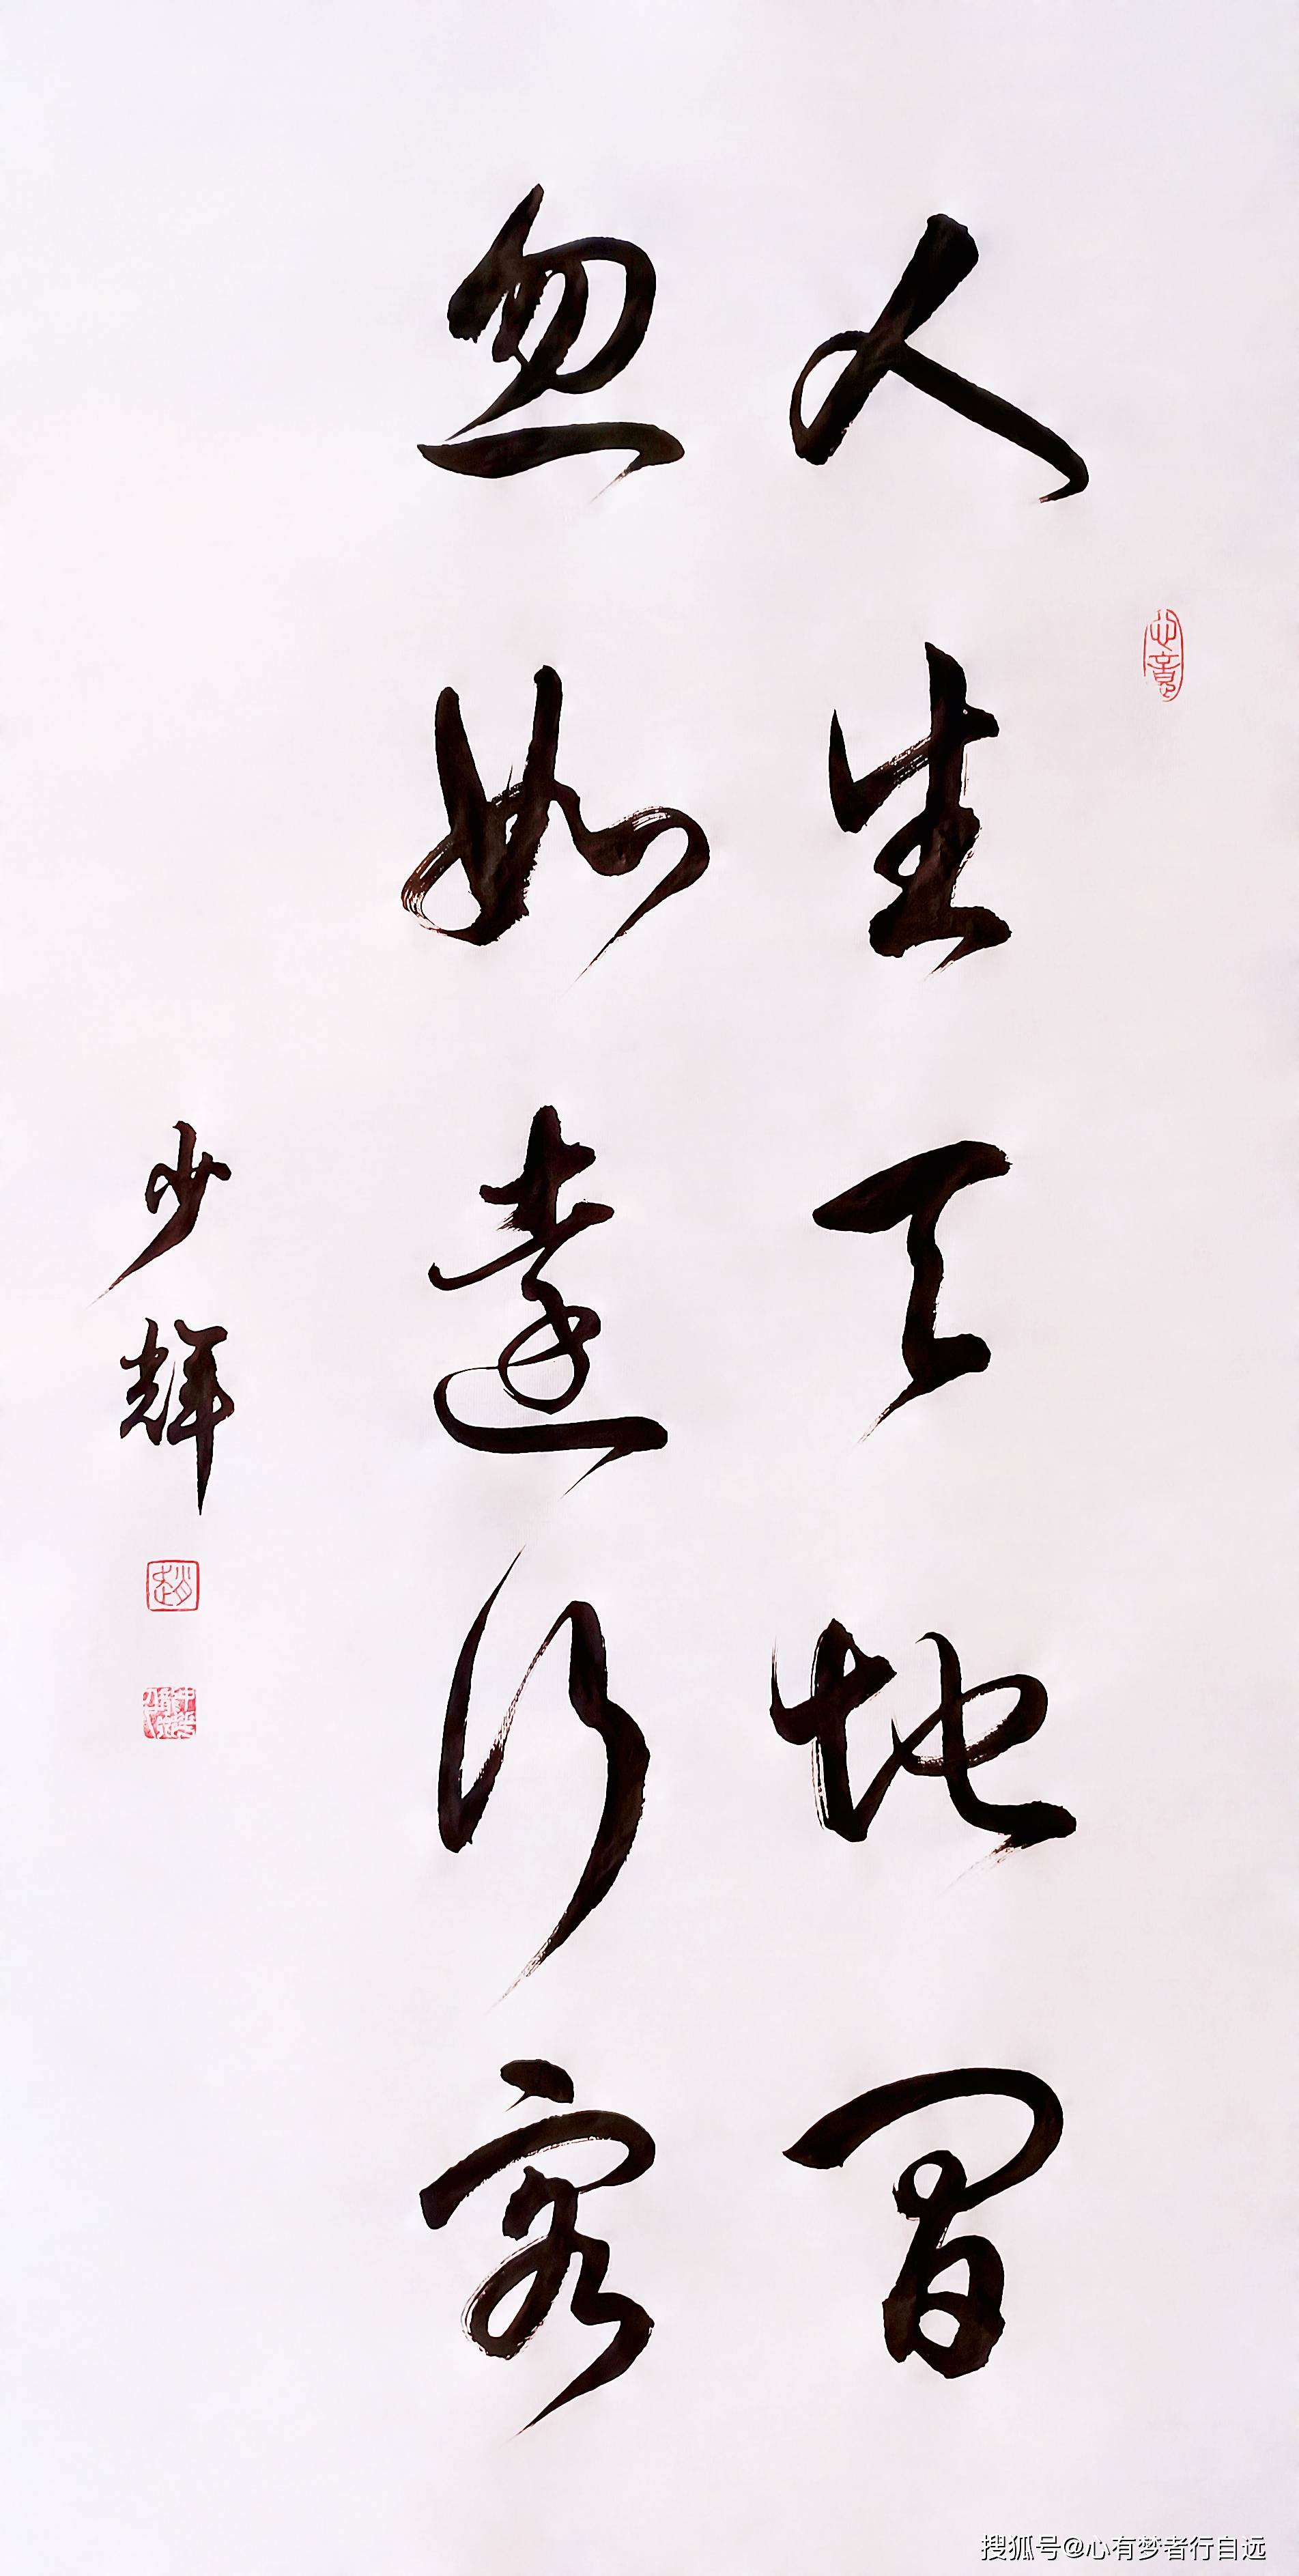 人生天地間
忽如遠行客
少輝
趙
搜狐号@心有梦者行自远